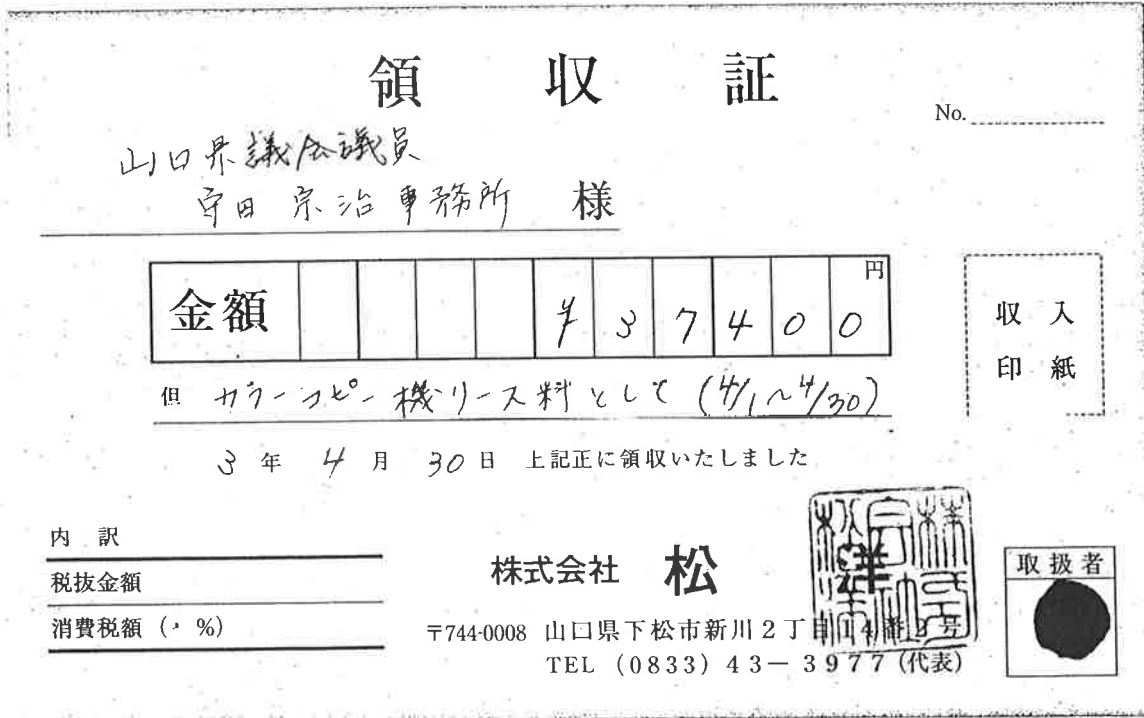 領収証
No.
山口県議会議員
守田宗治事務所 様
金額 ¥37400円
収入
印紙
但 カラーコピー機リース料として(4/1~4/30)
3年 4月 30日 上記正に領収いたしました
内訳
税抜金額
消費税額( %)
株式会社 松洋
〒744-0008 山口県下松市新川2丁目14番3号
TEL (0833) 43-3977 (代表)
取扱者